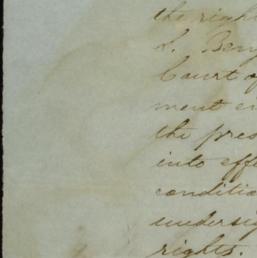 the righ
S. Ben
Court of
ment en
the pres
into effe
conditio
undersig
rights.